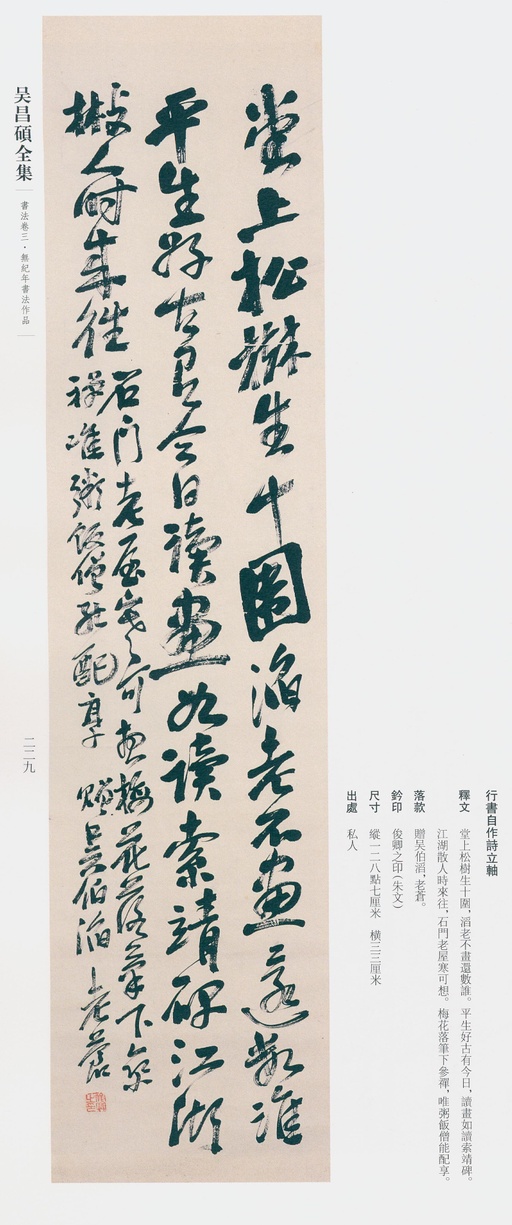 行書自作詩立軸
釋文 堂上松樹生十圍，滔老不畫還數誰。平生好古有今日，讀畫如讀索靖碑。
江湖散人時來往，石門老屋寒可想。梅花落筆下參禪，唯粥飯僧能配享。
落款 贈吴伯滔，老蒼。
鈐印 俊卿之印（朱文）
尺寸 縱一二八點七厘米 橫三三厘米
出處 私人
堂上松樹生十圍滔老不畫還數誰
平生好古有今日讀畫如讀索靖碑江湖
散人時來往
石門老屋寒可想梅花落筆下參
禪唯粥飯僧能配享 贈吴伯滔 老蒼
吴昌碩全集
書法卷三·無紀年書法作品
二二九